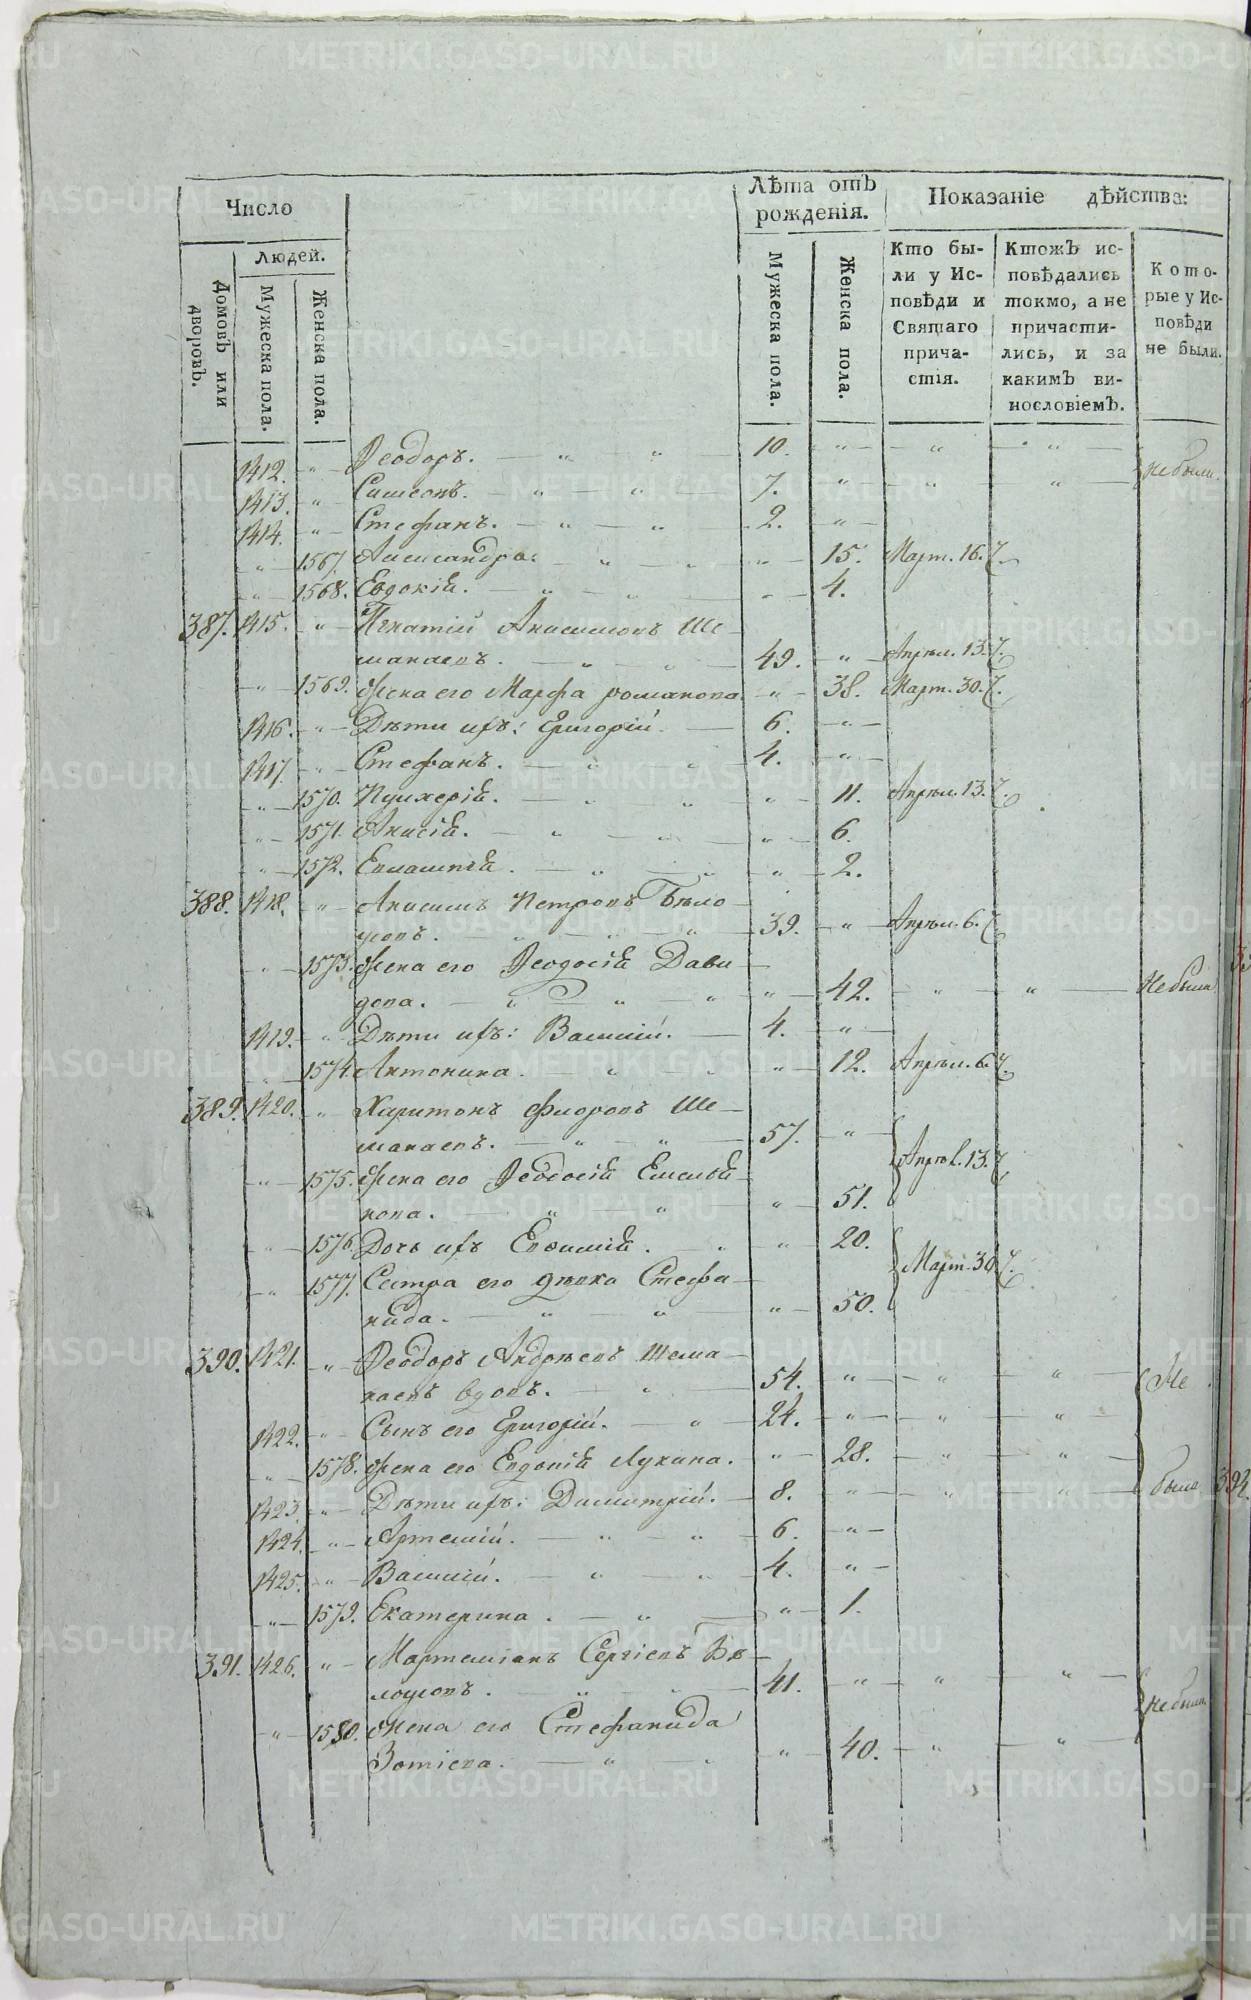 Число
Лѣта отъ рожденія.
Показаніе дѣйства:
Домовъ или дворовъ.
Людей.
Мужеска пола.
Женска пола.
Мужеска пола.
Женска пола.
Кто были у Исповѣди и Святаго причастія.
Ктожъ исповѣдались токмо, а не причастились, и за какимъ винословіемъ.
Которые у Исповѣди не были.
1412. „ Ѳеодоръ. 10. „ „ „ не были.
1413. „ Симеонъ. 7. „ „ „
1414. „ Стефанъ. 2. „
„ 1567. Александра. „ 15. Март. 16.
„ 1568. Евдокія. „ 4.
387. 1415. „ Игнатій Анисимовъ Ше-
манаевъ. 49. „ Апрѣл. 13.
„ 1569. Жена его Марфа романова „ 38. Март. 30.
1416. „ Дѣти ихъ: Григорій. 6. „
1417. „ Стефанъ. 4. „
„ 1570. Пулхерія. „ 11. Апрѣл. 13.
„ 1571. Анисія. „ 6.
„ 1572. Евлампія. „ 2.
388. 1418. „ Анисимъ Петровъ Бѣло-
усовъ. 39. „ Апрѣл. 6.
„ 1573. Жена его Ѳеодосія Дави-
дова. „ 42. „ „ Не была
1419. „ Дѣти ихъ: Василій. 4. „
„ 1574. Антонина. „ 12. Апрѣл. 6.
389. 1420. „ Харитонъ Флоровъ Ше-
манаевъ. 57. „ Апрѣл. 13.
„ 1575. Жена его Ѳеодосія Емелья-
нова. „ 51.
„ 1576. Дочь ихъ Евѳимія. „ 20. Март. 30.
„ 1577. Сестра его дѣвка Стефа-
нида. „ 50.
390. 1421. „ Ѳеодоръ Андрѣевъ Шема-
наевъ вдовъ. 54. „ „ „ Не
1422. „ Сынъ его Григорій. 24. „ „ „
„ 1578. Жена его Евдокія Лукина. „ 28. „ „ были
1423. „ Дѣти ихъ: Димитрій. 8. „ „ „
1424. „ Артемій. 6. „
1425. „ Василій. 4. „
„ 1579. Екатерина. „ 1.
391. 1426. „ Мартеміанъ Сергіевъ Бѣ-
лоусовъ. 41. „ „ „ не были.
„ 1580. Жена его Стефанида
Зотіева. „ 40. „ „
METRIKI.GASO-URAL.RU